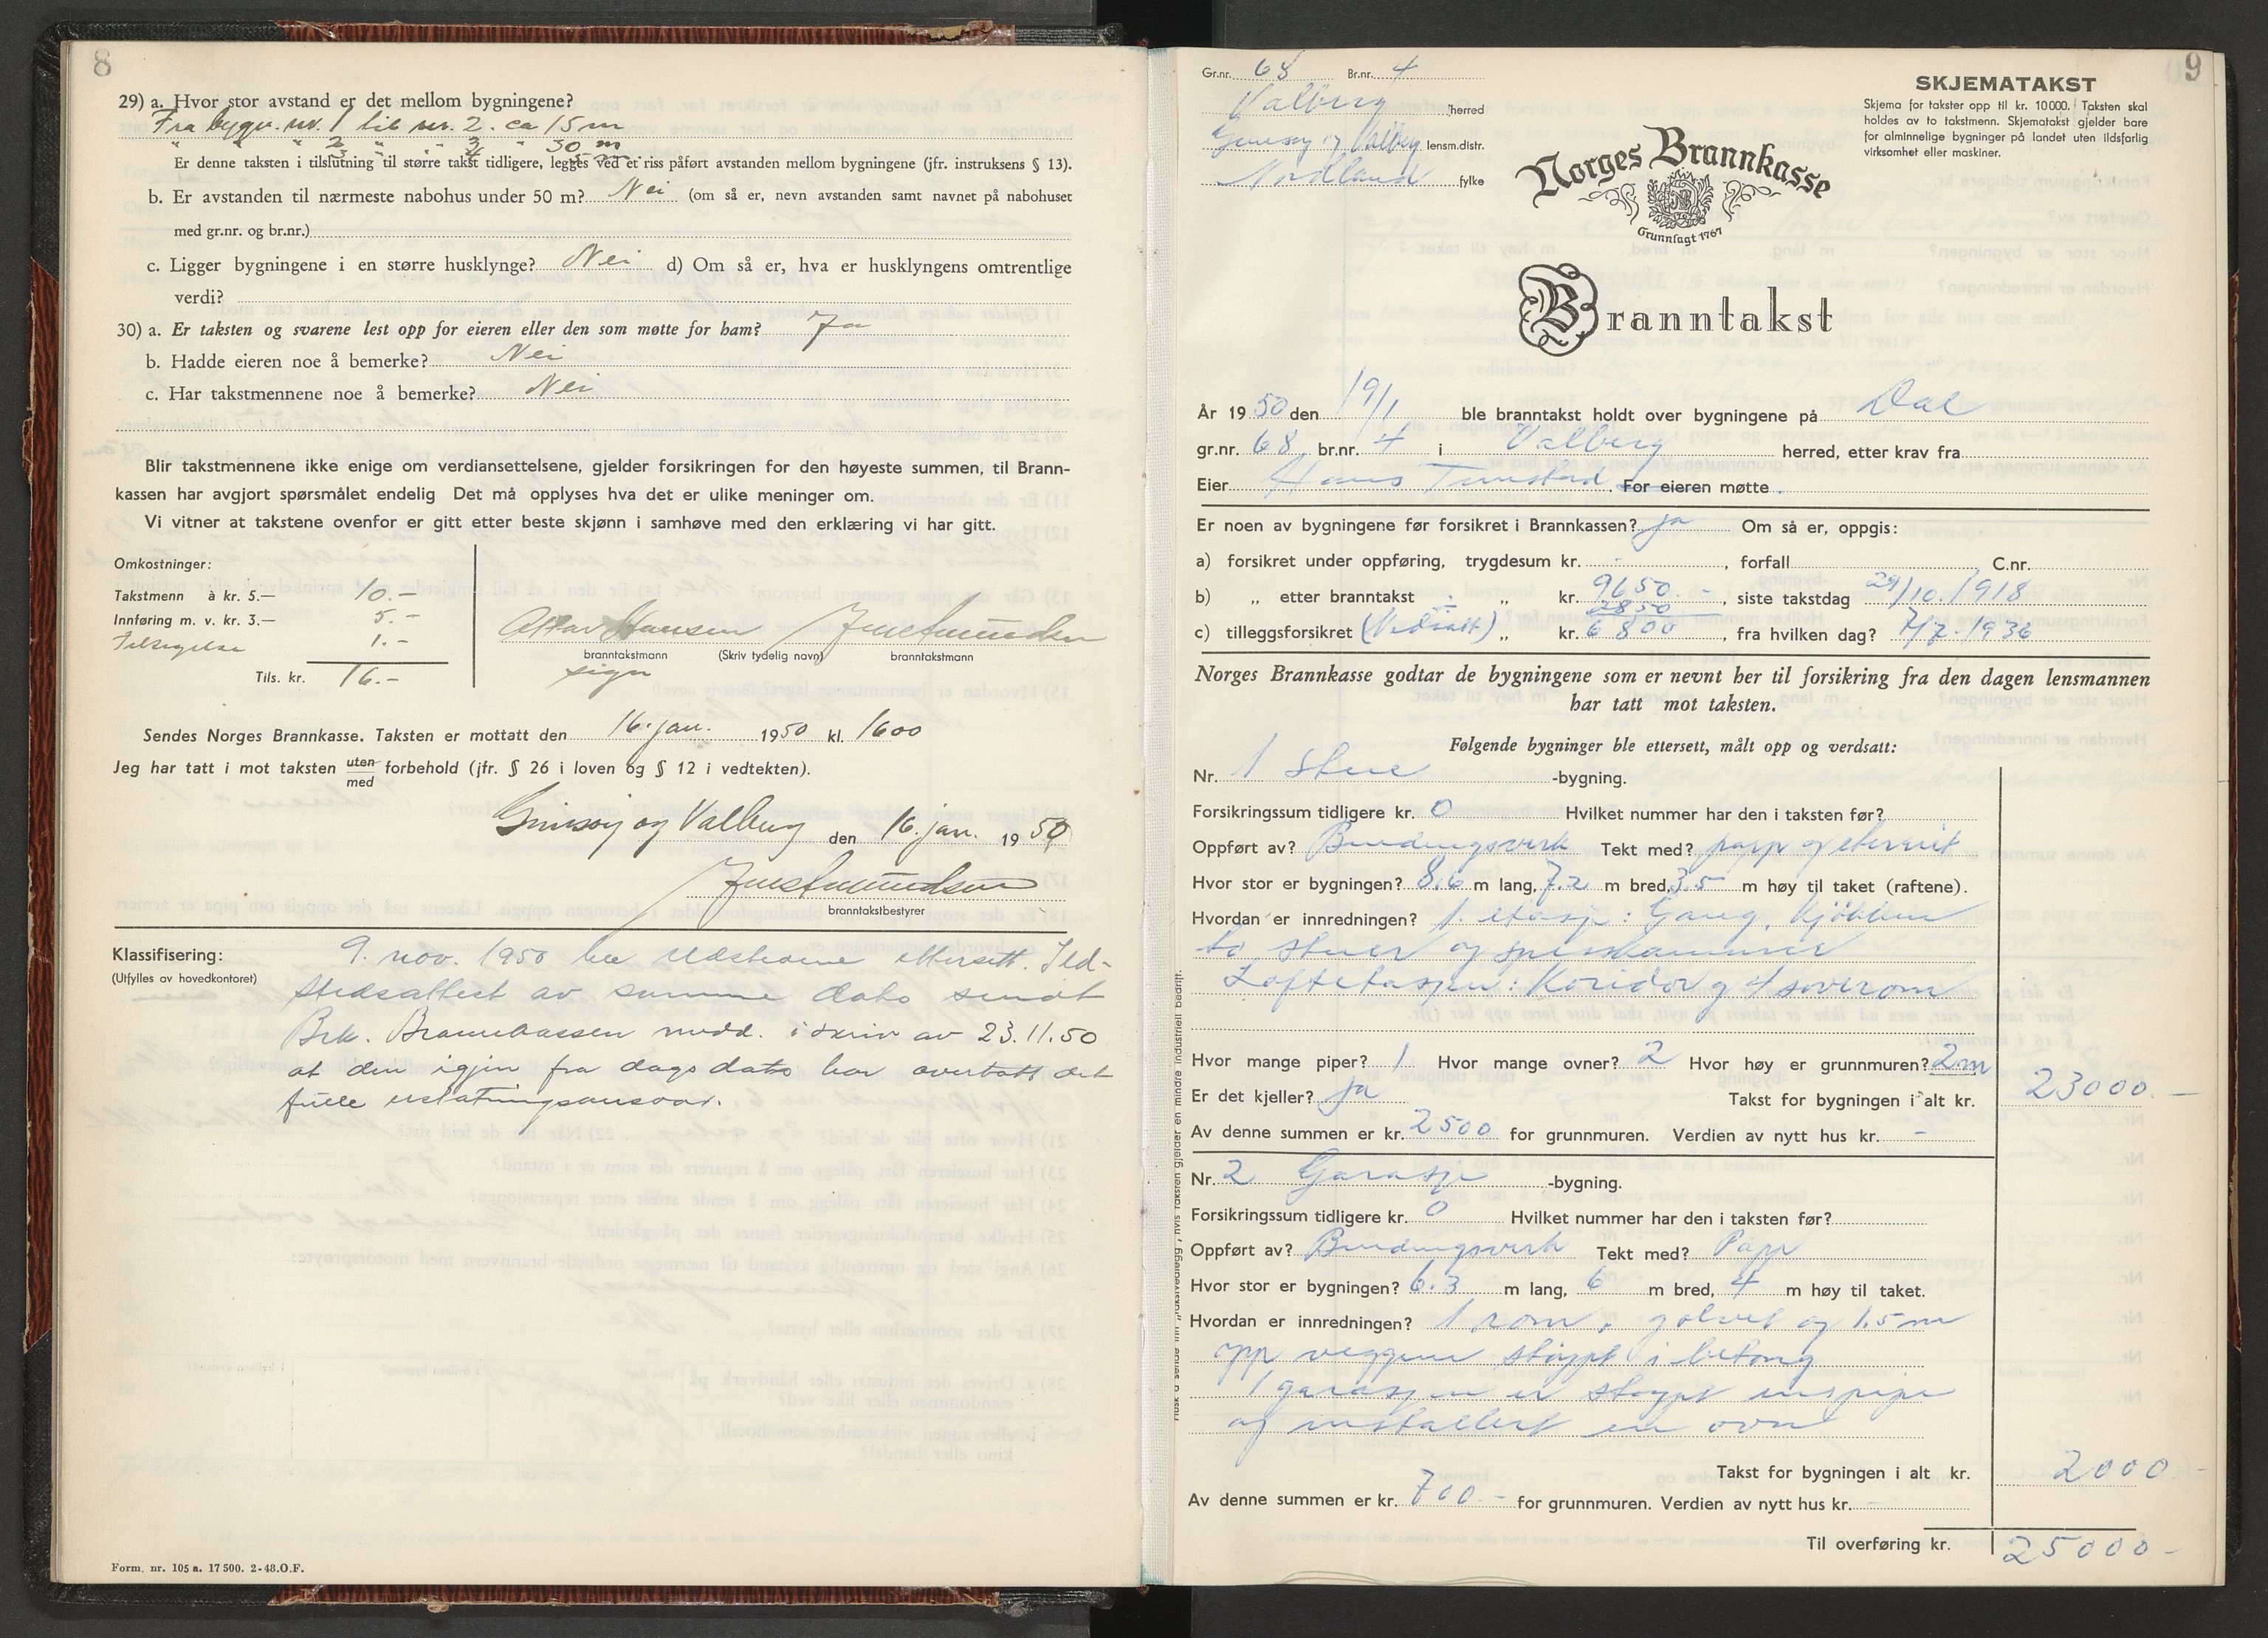 8
29) a. Hvor stor avstand er det mellom bygningene?
Fra bygn. nr. 1 til nr. 2. ca 15 m
" " " 2 " " 3 " 30 m
Er denne taksten i tilslutning til større takst tidligere, legges ved et riss påført avstanden mellom bygningene (jfr. instruksens § 13).
b. Er avstanden til nærmeste nabohus under 50 m? Nei (om så er, nevn avstanden samt navnet på nabohuset
med gr.nr. og br.nr.)
c. Ligger bygningene i en større husklynge? Nei d) Om så er, hva er husklyngens omtrentlige
verdi?
30) a. Er taksten og svarene lest opp for eieren eller den som møtte for ham? Ja
b. Hadde eieren noe å bemerke? Nei
c. Har takstmennene noe å bemerke? Nei
Blir takstmennene ikke enige om verdiansettelsene, gjelder forsikringen for den høyeste summen, til Brann-
kassen har avgjort spørsmålet endelig Det må opplyses hva det er ulike meninger om.
Vi vitner at takstene ovenfor er gitt etter beste skjønn i samhøve med den erklæring vi har gitt.
Omkostninger:
Takstmenn à kr. 5.— 10.-
Innføring m. v. kr. 3.— 5.-
Tilsigelse 1.-
Tils. kr. 16.-
Ottar Hansen
branntakstmann (Skriv tydelig navn) branntakstmann
sign
Sendes Norges Brannkasse. Taksten er mottatt den 16. jan. 1950 kl. 1600
Jeg har tatt i mot taksten uten
med forbehold (jfr. § 26 i loven og § 12 i vedtekten).
Gimsøy og Valberg den 16. jan. 1950
branntakstbestyrer
Klassifisering:
(Utfylles av hovedkontoret)
9. nov. 1950 ble ildstedene ettersett. Ild-
stedsattest av samme dato sendt
Brk. Brannkassen medd. i skriv av 23.11.50
at den igjen fra dags dato har overtatt det
fulle erstatningsansvar.
Form. nr. 105 a. 17 500. 2-48. O.F.
9
Gr.nr. 68 Br.nr. 4
Valberg herred
Gimsøy og Valberg lensm.distr.
Nordland fylke
SKJEMATAKST
Skjema for takster opp til kr. 10 000. Taksten skal
holdes av to takstmenn. Skjematakst gjelder bare
for alminnelige bygninger på landet uten ildsfarlig
virksomhet eller maskiner.
Norges Brannkasse
Grunnlagt 1767
Branntakst
År 1950 den 19/1 ble branntakst holdt over bygningene på Dal
gr.nr. 68, br.nr. 4 i Valberg herred, etter krav fra
Eier Hans Tunstad. For eieren møtte
Er noen av bygningene før forsikret i Brannkassen? ja Om så er, oppgis:
a) forsikret under oppføring, trygdesum kr. - , forfall , C.nr.
b) „ etter branntakst „ kr. 9650.- , siste takstdag 29/10. 1918
2850
c) tilleggsforsikret (Nedsatt) „ kr. 6800 , fra hvilken dag? 7/7. 1936
Norges Brannkasse godtar de bygningene som er nevnt her til forsikring fra den dagen lensmannen
har tatt mot taksten.
Følgende bygninger ble ettersett, målt opp og verdsatt:
Nr. 1 Stue -bygning.
Forsikringssum tidligere kr. 0 Hvilket nummer har den i taksten før?
Oppført av? Bindingsverk Tekt med? papp og eternit
Hvor stor er bygningen? 8.6 m lang, 7.2 m bred, 3.5 m høy til taket (raftene).
Hvordan er innredningen? 1. etasje: Gang, kjøkken
to stuer og spiskammer
Loftetasjen: Koridor og 4 soverom
Hvor mange piper? 1 Hvor mange ovner? 2 Hvor høy er grunnmuren? 2 m
Er det kjeller? ja Takst for bygningen i alt kr. 23000.-
Av denne summen er kr. 2500 for grunnmuren. Verdien av nytt hus kr. -
Nr. 2 Garasje -bygning.
Forsikringssum tidligere kr. 0 Hvilket nummer har den i taksten før?
Oppført av? Bindingsverk Tekt med? Papp
Hvor stor er bygningen? 6.3 m lang, 6 m bred, 4 m høy til taket.
Hvordan er innredningen? 1 rom, golvet og 1.5 m
opp veggene støypt i betong
I garasjen er støypt
og installert en ovn
Takst for bygningen i alt kr. 2000.-
Av denne summen er kr. 700.- for grunnmuren. Verdien av nytt hus kr. -
Til overføring kr. 25000-